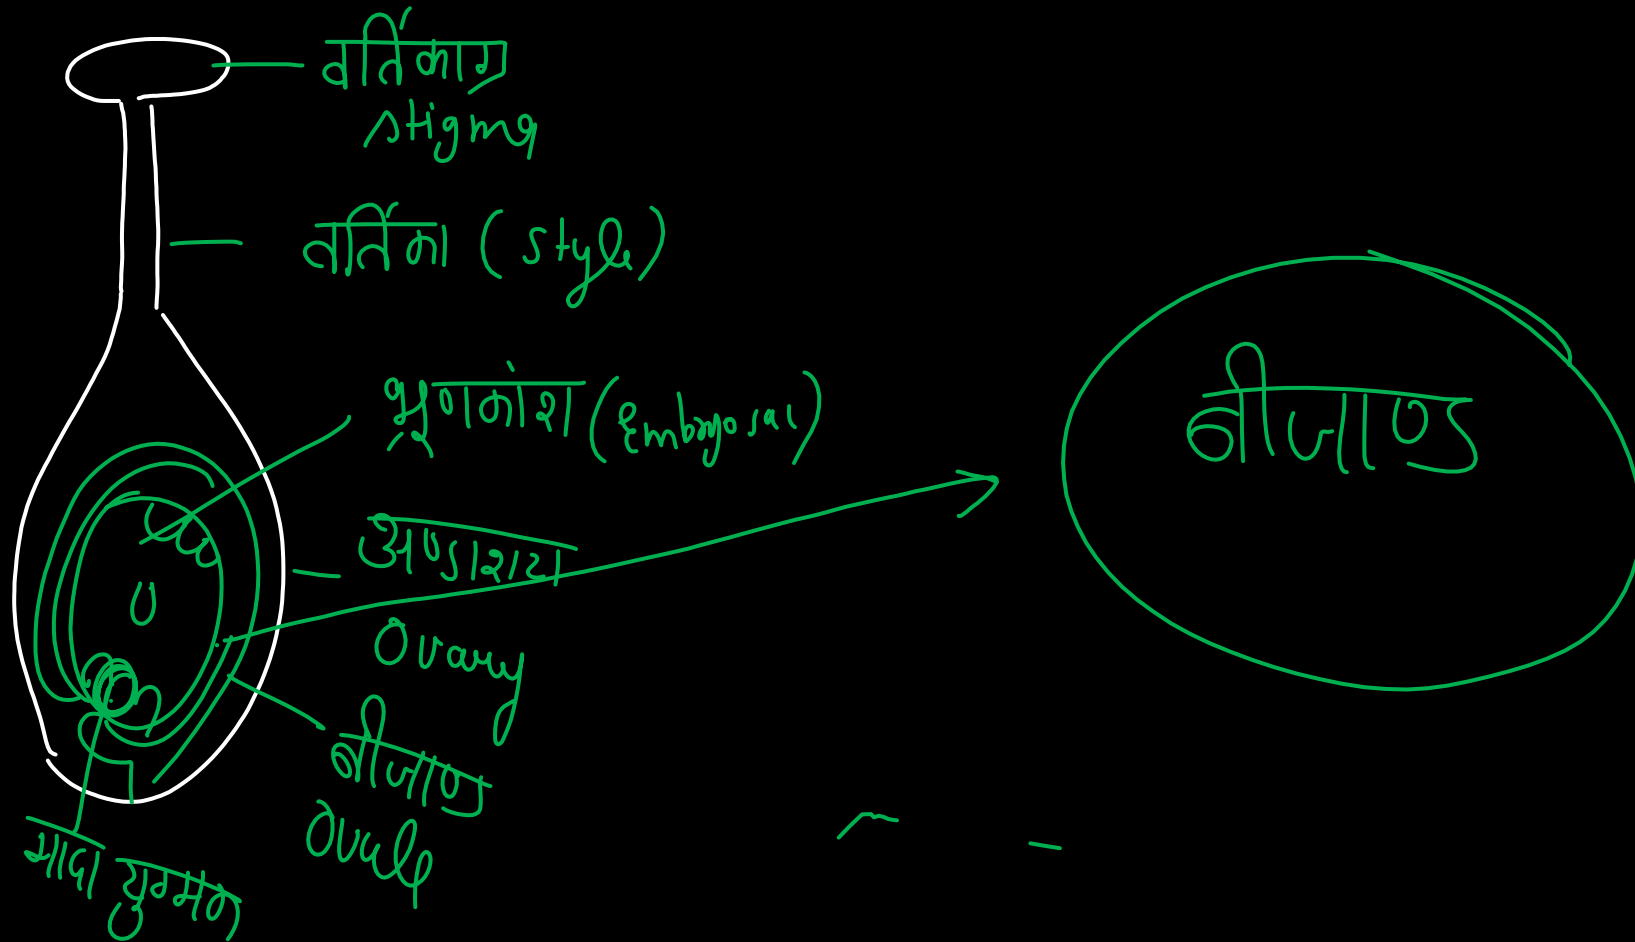 वर्तिकाग्र
stigma
वर्तिका (style)
भ्रूणकोश (Embryosac)
अण्डाशय
Ovary
बीजाण्ड
Ovule
मादा युग्मक
बीजाण्ड